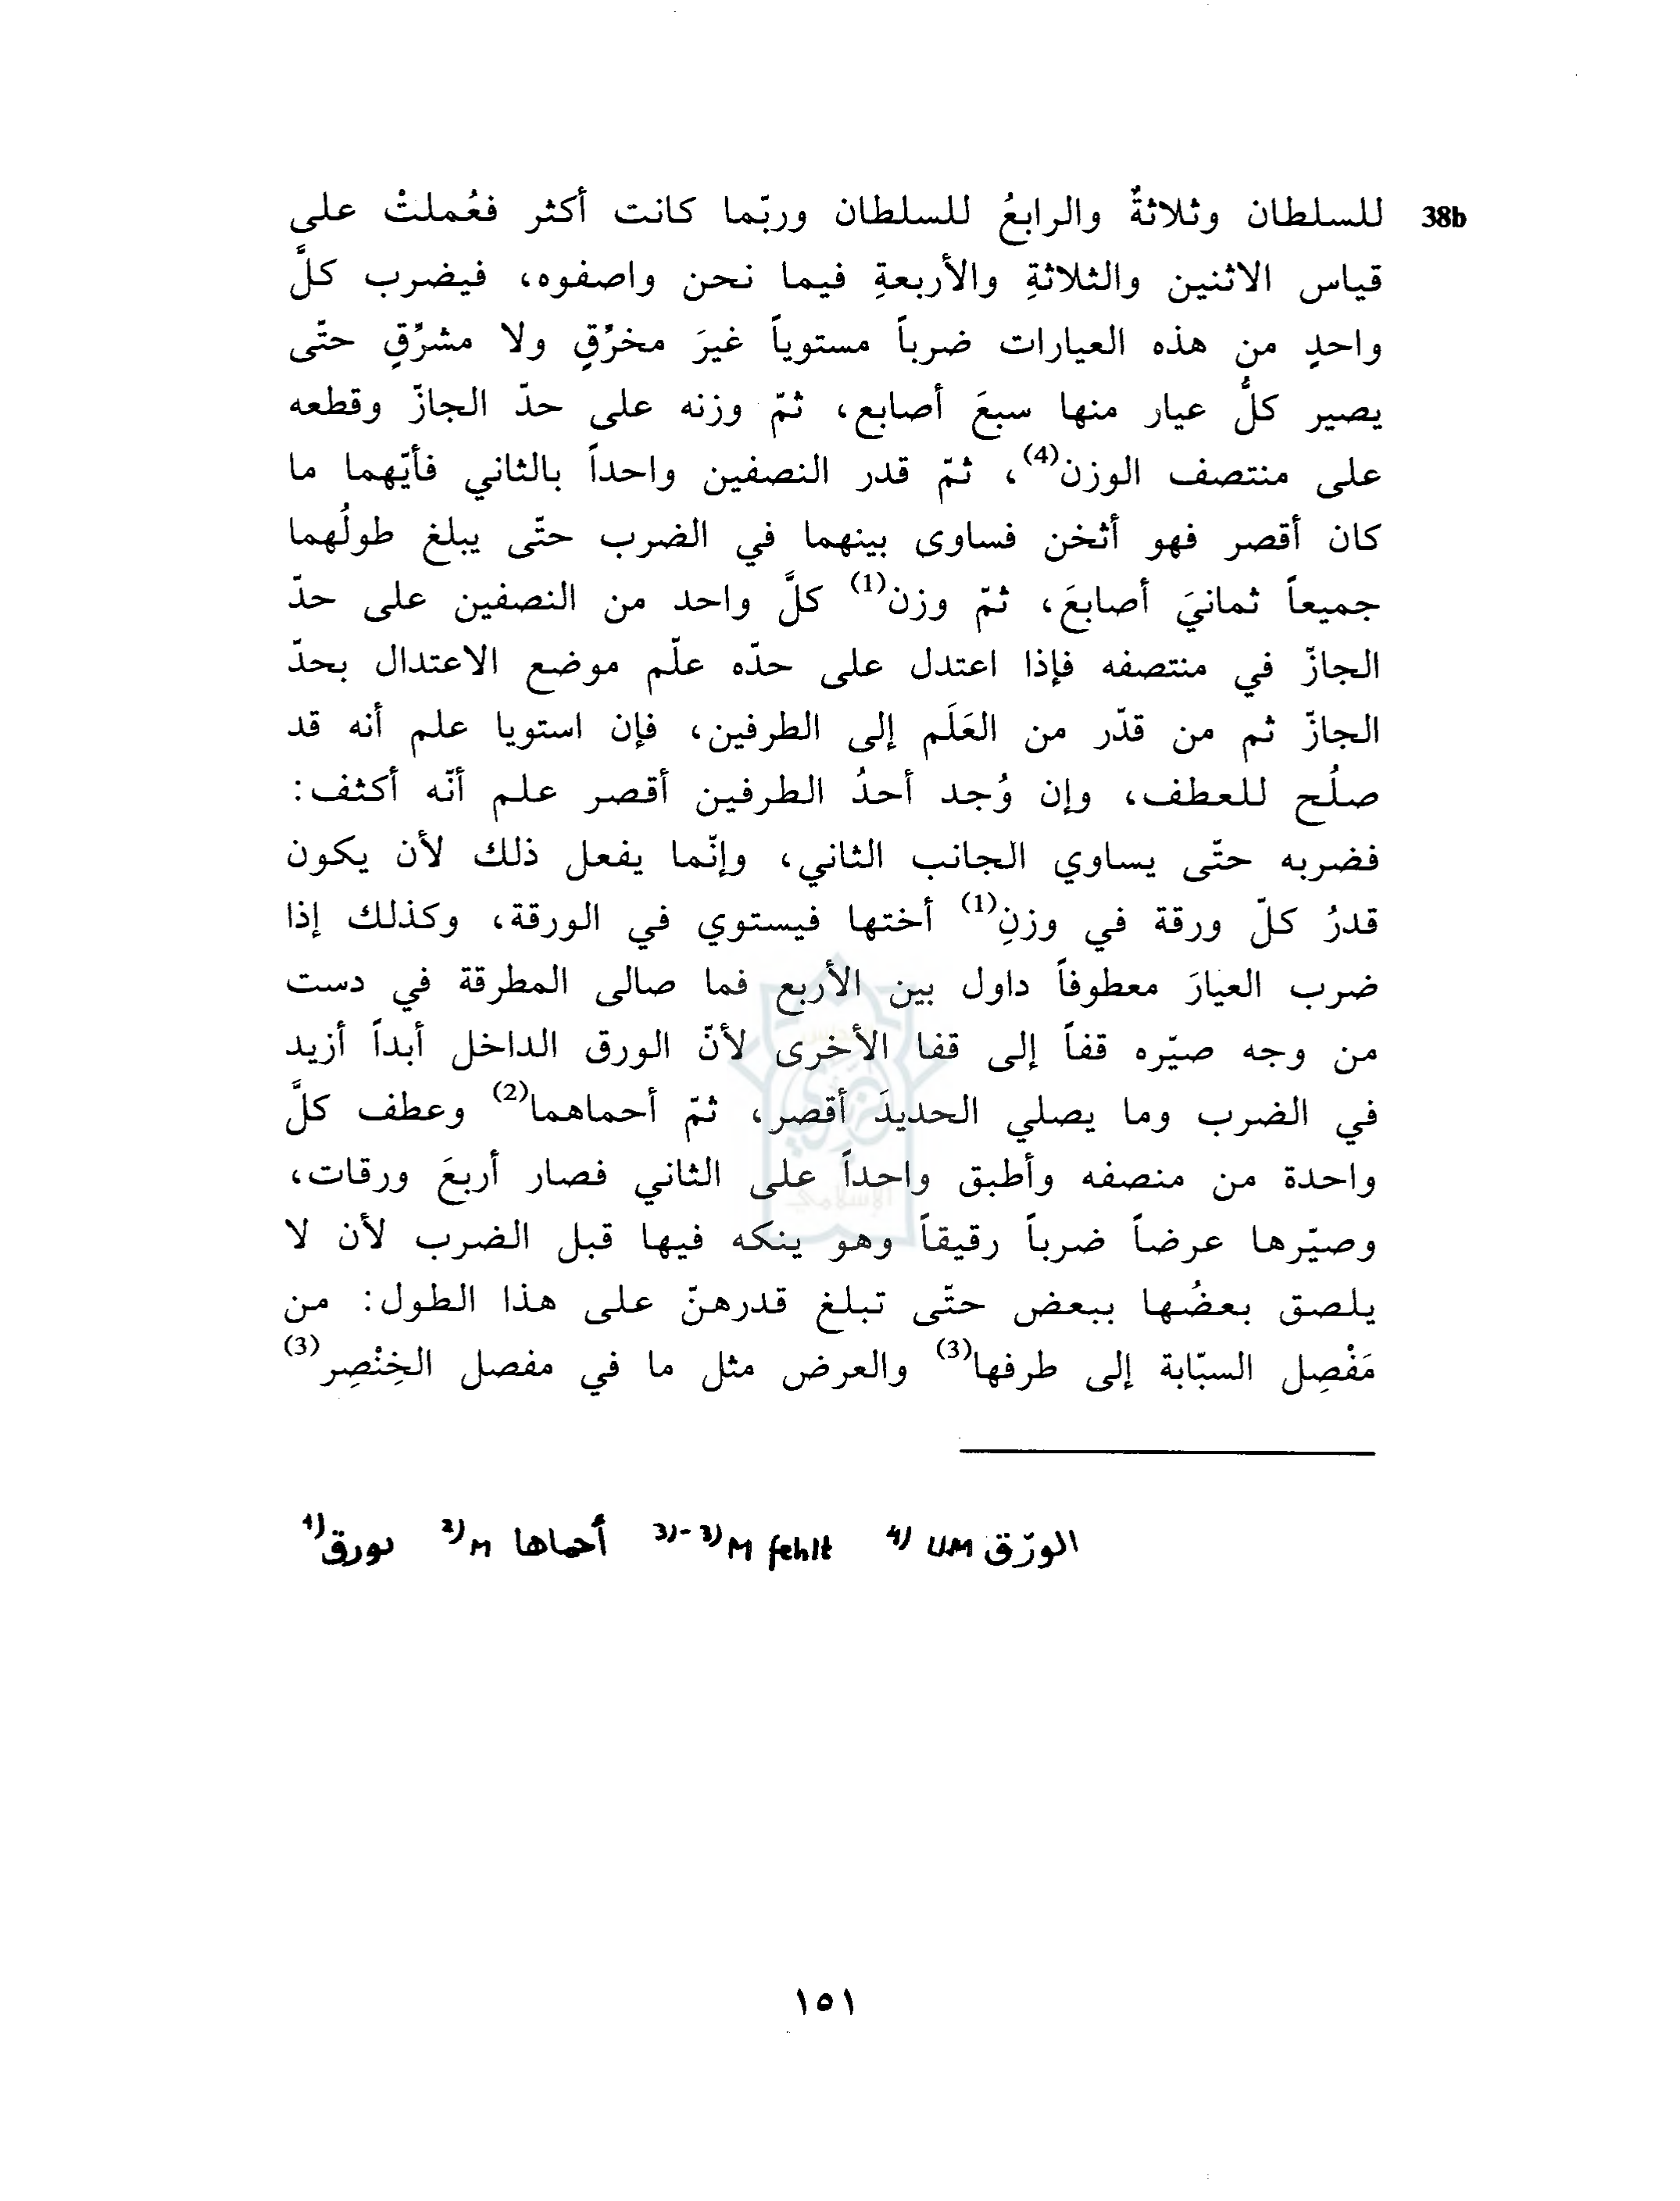 38b للسلطان وثلاثةٌ والرابعُ للسلطان وربّما كانت أكثر فعُملتْ على
قياس الاثنين والثلاثةِ والأربعةِ فيما نحن واصفوه، فيضرب كلَّ
واحدٍ من هذه العيارات ضرباً مستوياً غيرَ مخرَّقٍ ولا مشرَّقٍ حتّى
يصير كلُّ عيار منها سبعَ أصابع، ثمّ وزنه على حدّ الجازّ وقطعه
على منتصف الوزن(4)، ثمّ قدر النصفين واحداً بالثاني فأيّهما ما
كان أقصر فهو أثخن فساوى بينهما في الضرب حتّى يبلغ طولُهما
جميعاً ثمانيَ أصابعَ، ثمّ وزن(1) كلَّ واحد من النصفين على حدّ
الجازّ في منتصفه فإذا اعتدل على حدّه علّم موضع الاعتدال بحدّ
الجازّ ثم من قدّر من العَلَم إلى الطرفين، فإن استويا علم أنه قد
صلُح للعطف، وإن وُجد أحدُ الطرفين أقصر علم أنّه أكثف:
فضربه حتّى يساوي الجانب الثاني، وإنّما يفعل ذلك لأن يكون
قدرُ كلّ ورقة في وزنِ(1) أختها فيستوي في الورقة، وكذلك إذا
ضرب العيارَ معطوفاً داول بين الأربع فما صالى المطرقة في دست
من وجه صيّره قفاً إلى قفا الأخرى لأنّ الورق الداخل أبداً أزيد
في الضرب وما يصلي الحديدَ أقصر، ثمّ أحماهما(2) وعطف كلَّ
واحدة من منصفه وأطبق واحداً على الثاني فصار أربعَ ورقات،
وصيّرها عرضاً ضرباً رقيقاً وهو ينكه فيها قبل الضرب لأن لا
يلصق بعضُها ببعض حتّى تبلغ قدرهنّ على هذا الطول: من
مَفْصِل السبّابة إلى طرفها(3) والعرض مثل ما في مفصل الخِنْصِر(3)
1) بورق 2) M أحماها 3)-3) M fehlt 4) UM الورّق
١٥١